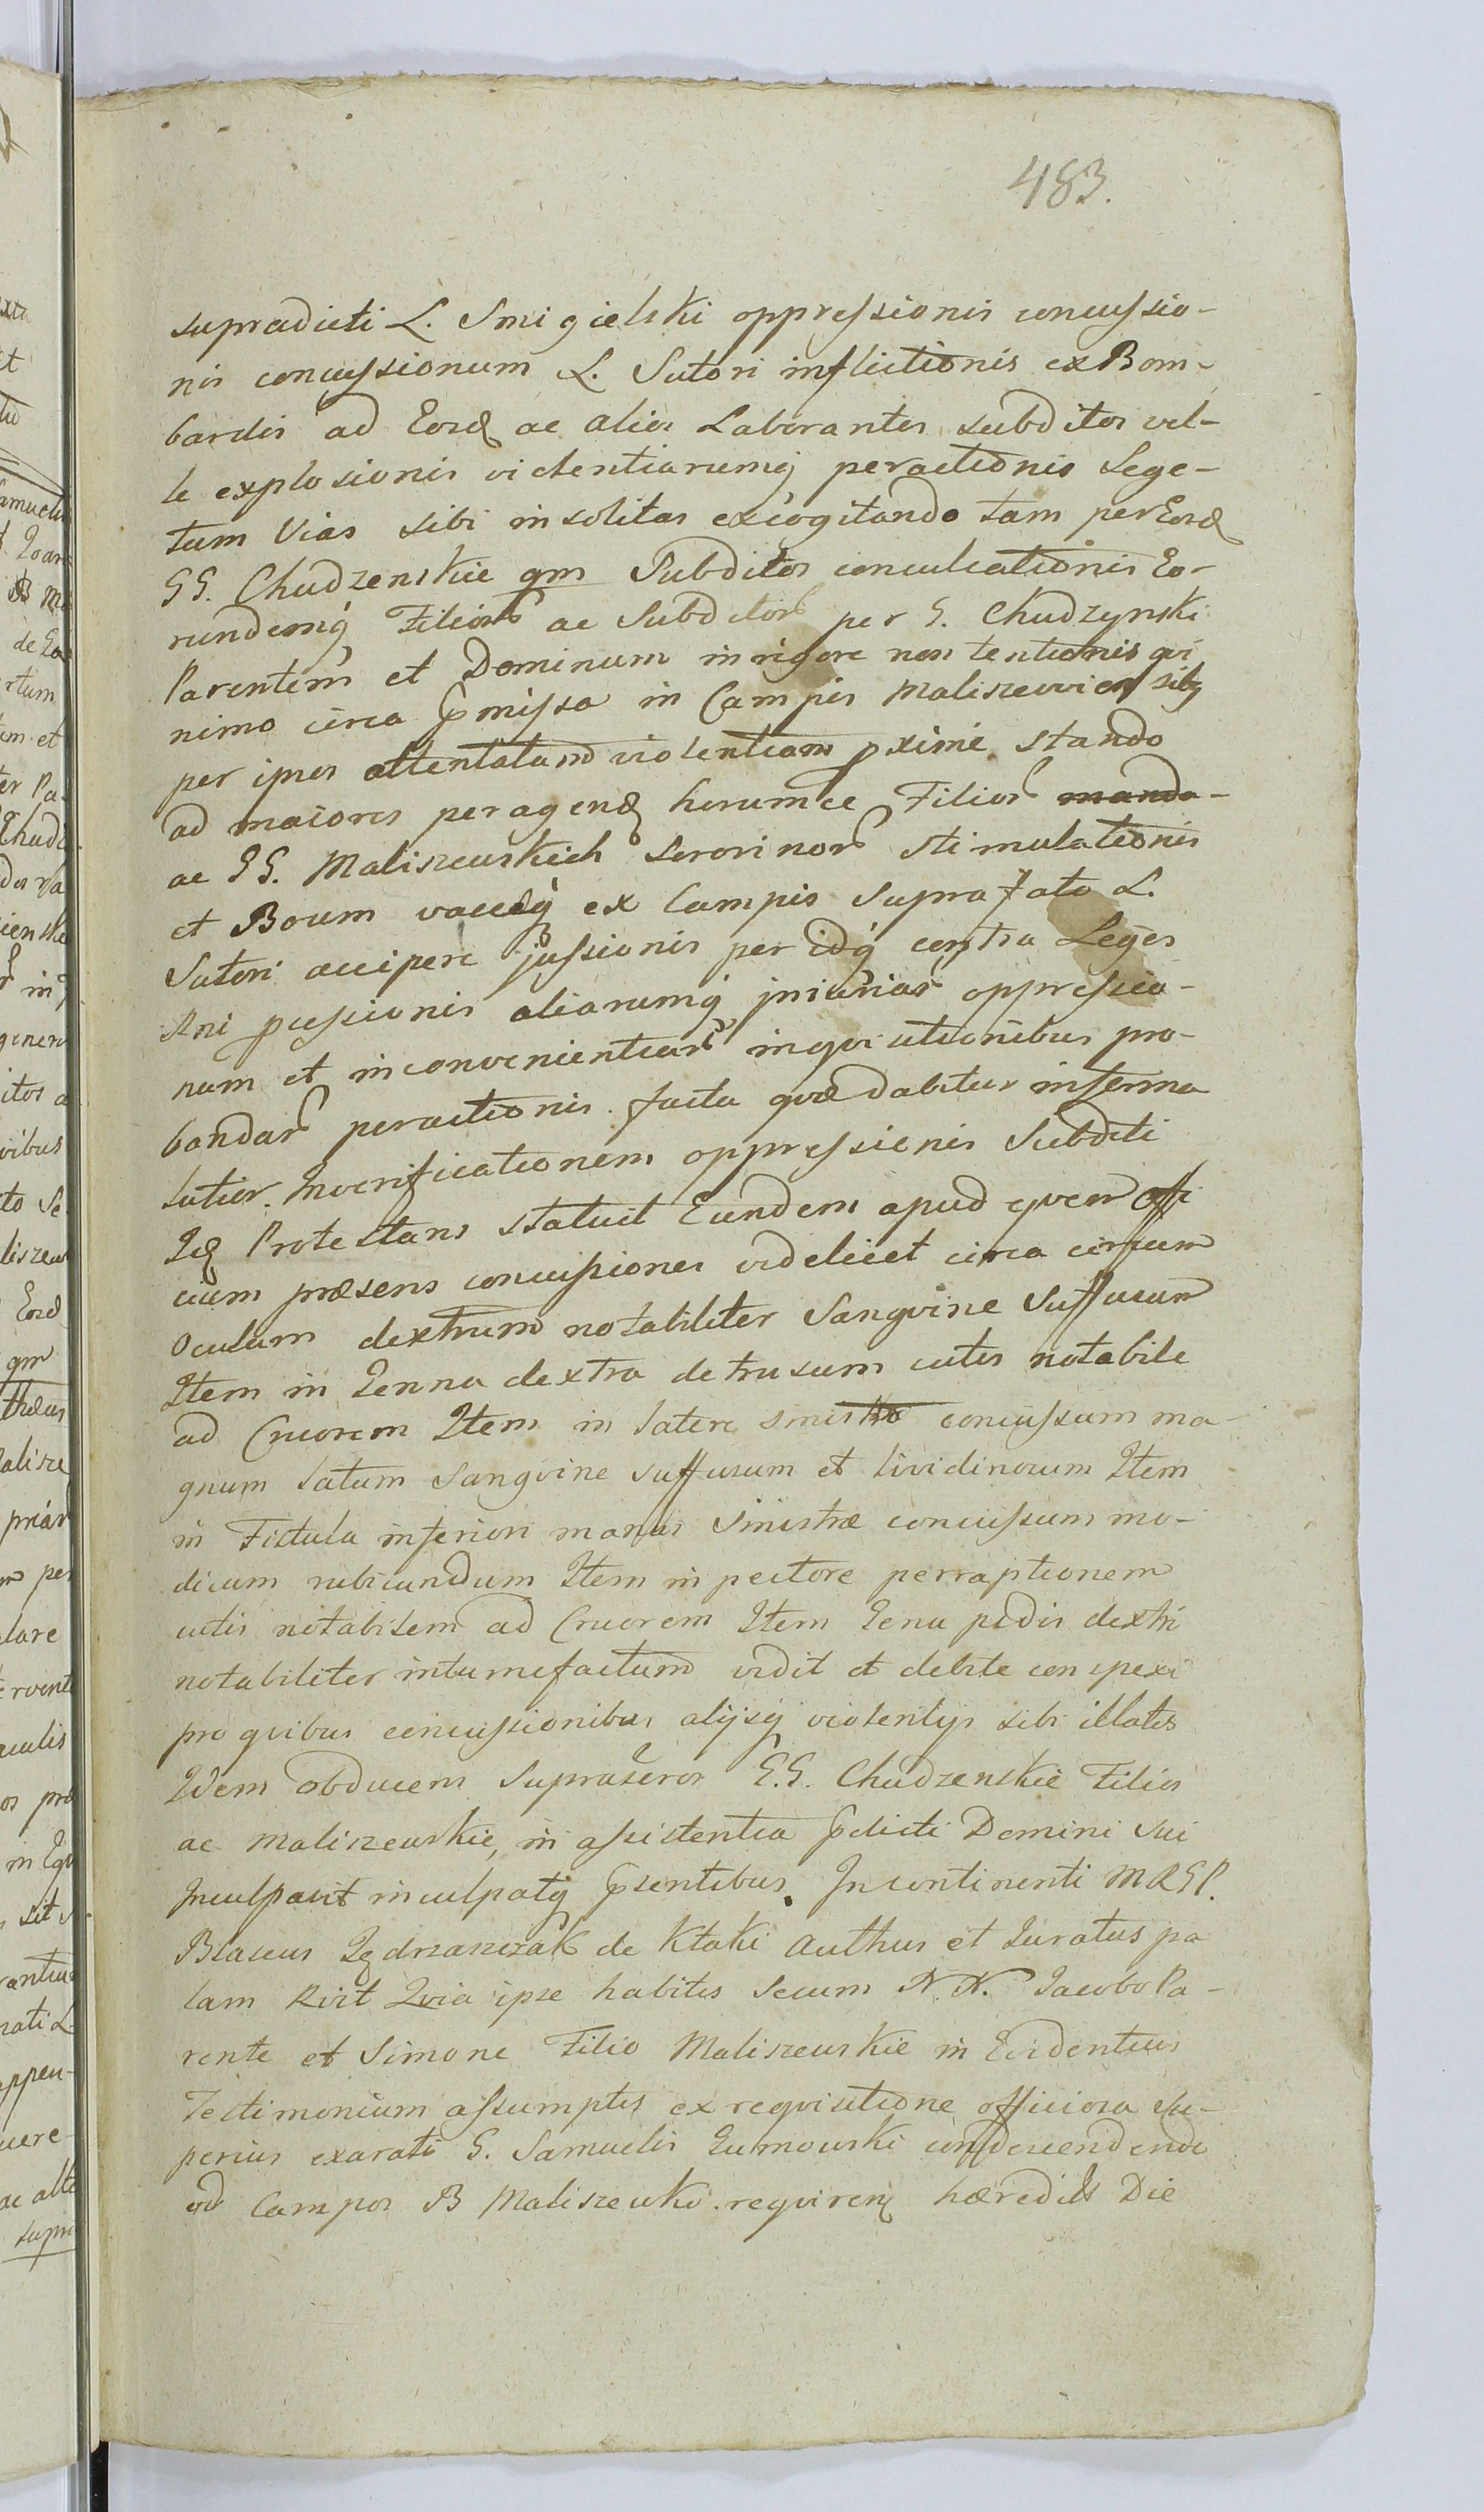 483.
supradicti L. Smigielski oppressionis concussio-
nis concussionum L. Sutori inflictionis ex Bom-
bardis ad Eosd ac alios Laborantes subditos vel-
le explosionis violentiarumq peractionis Sege-
tum Vias sibi insolitas excogitando tam per Eosd
GG. Chudzenskie qm Subditos conculcationis Eo-
rundemq Filior ac Subditor per G. Chudzynski
Parentem et Dominum in rigore non tentionis qvi
nimo circa pmissa in Campis Maliszewiensibq
per ipsos attentatam violentiam pxime stando
ad maiores peragend horumce Filior manda-
ac GG. Maliszewskich Sororinor stimulationis
et Boum vaccarq ex Campis Suprafato L.
Sutori accipere jussionis per idq contra Leges
Rni pcessionis aliarumq iniuriar oppressio-
num et inconvenientiar inqvisitionibus pro-
bandar peractionis facta qvæ dabitur in forma
latior. In verificationem oppressionis Subditi
Id Protestans statuit Eundem apud qvem offi
cium præsens concussiones videlicet circa circum
Oculum dextrum notabiliter Sangvine Suffusum
Item in Genna dextra detrusum cutis notabile
ad Cruorem Item in latere sinistro concussum ma-
gnum latum Sangvine suffusum et lividinosum Item
in Fistula inferiori manus Sinistræ concussum mo-
dicum rubicundum Item in pectore perraptionem
cutis notabilem ad Cruorem Item Genu pedis dextri
notabiliter intumefactum vidit et debite conspexit
pro qvibus concussionibus alijsq violentijs sibi illatis
Idem obducens Supraseros G.G. Chudzenskie Filios
ac Maliszewskie, in assistentia pdicti Domini Sui
Inculpavit inculpatq psentibus. In continenti MRGP.
Blasius Jędrzaszczak de Kłaki Authus et Iuratus pa
lam Rvit Qvia ipse habitis Secum N.N. Iacobo Pa-
rente et Simone Filio Maliszewskie in Evidentius
Testimonium assumptis ex reqvisitione officiosa Su-
perius exarati G. Samuelis Gumowski condescendendo
ad Campos B Maliszewko reqviren hæredits Die